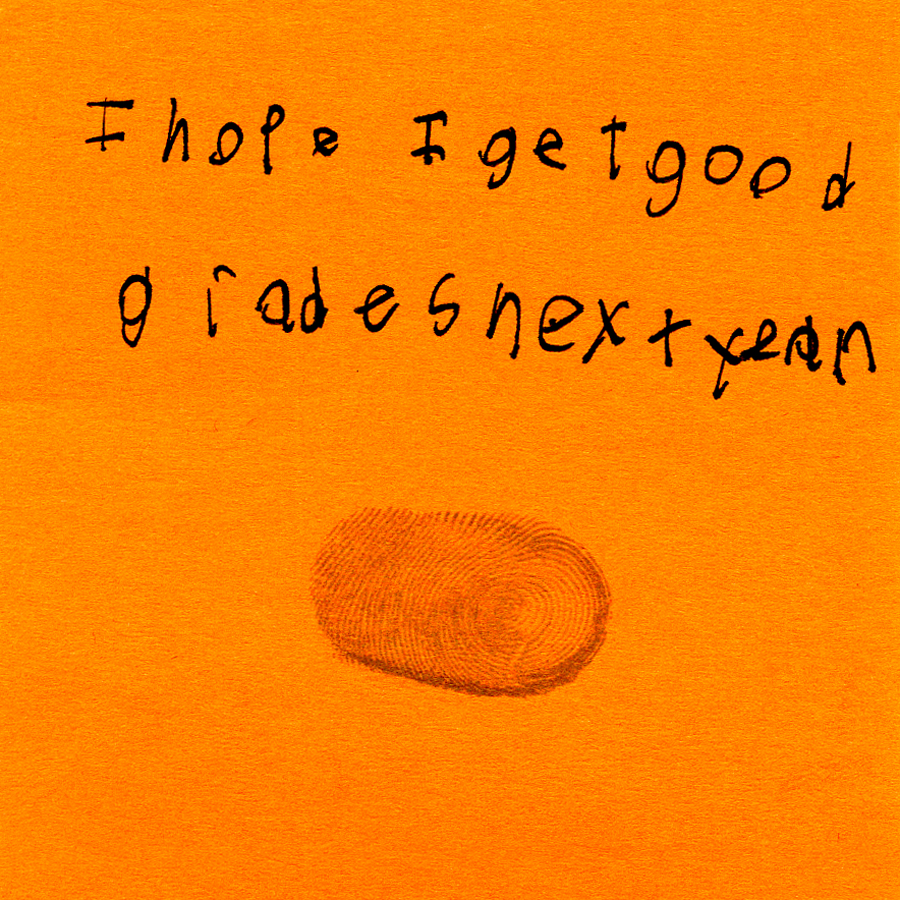 I hope I get good
grades next year